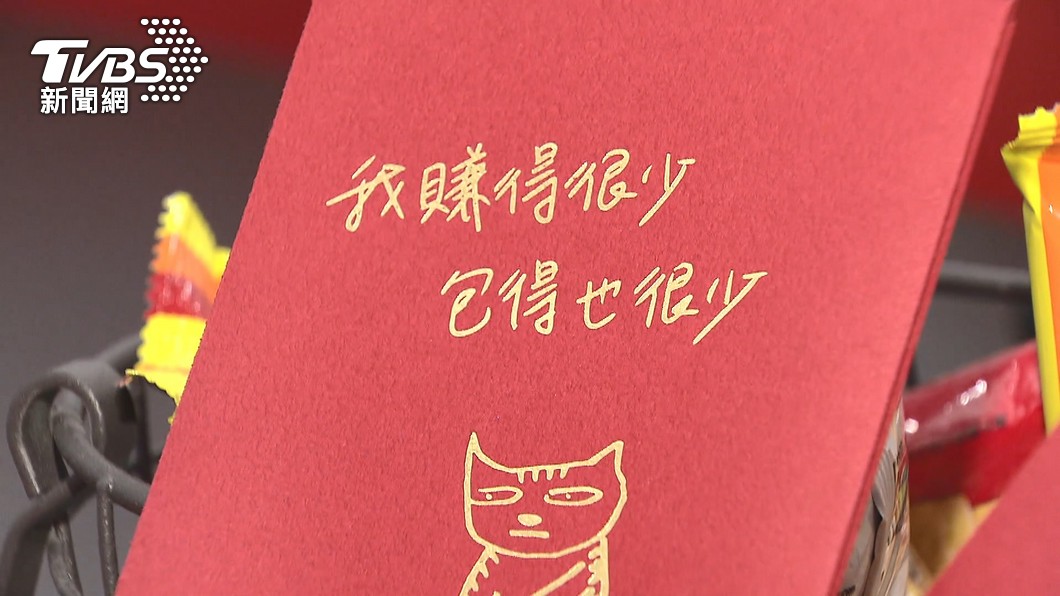 TVBS
新聞網
我賺得很少
包得也很少